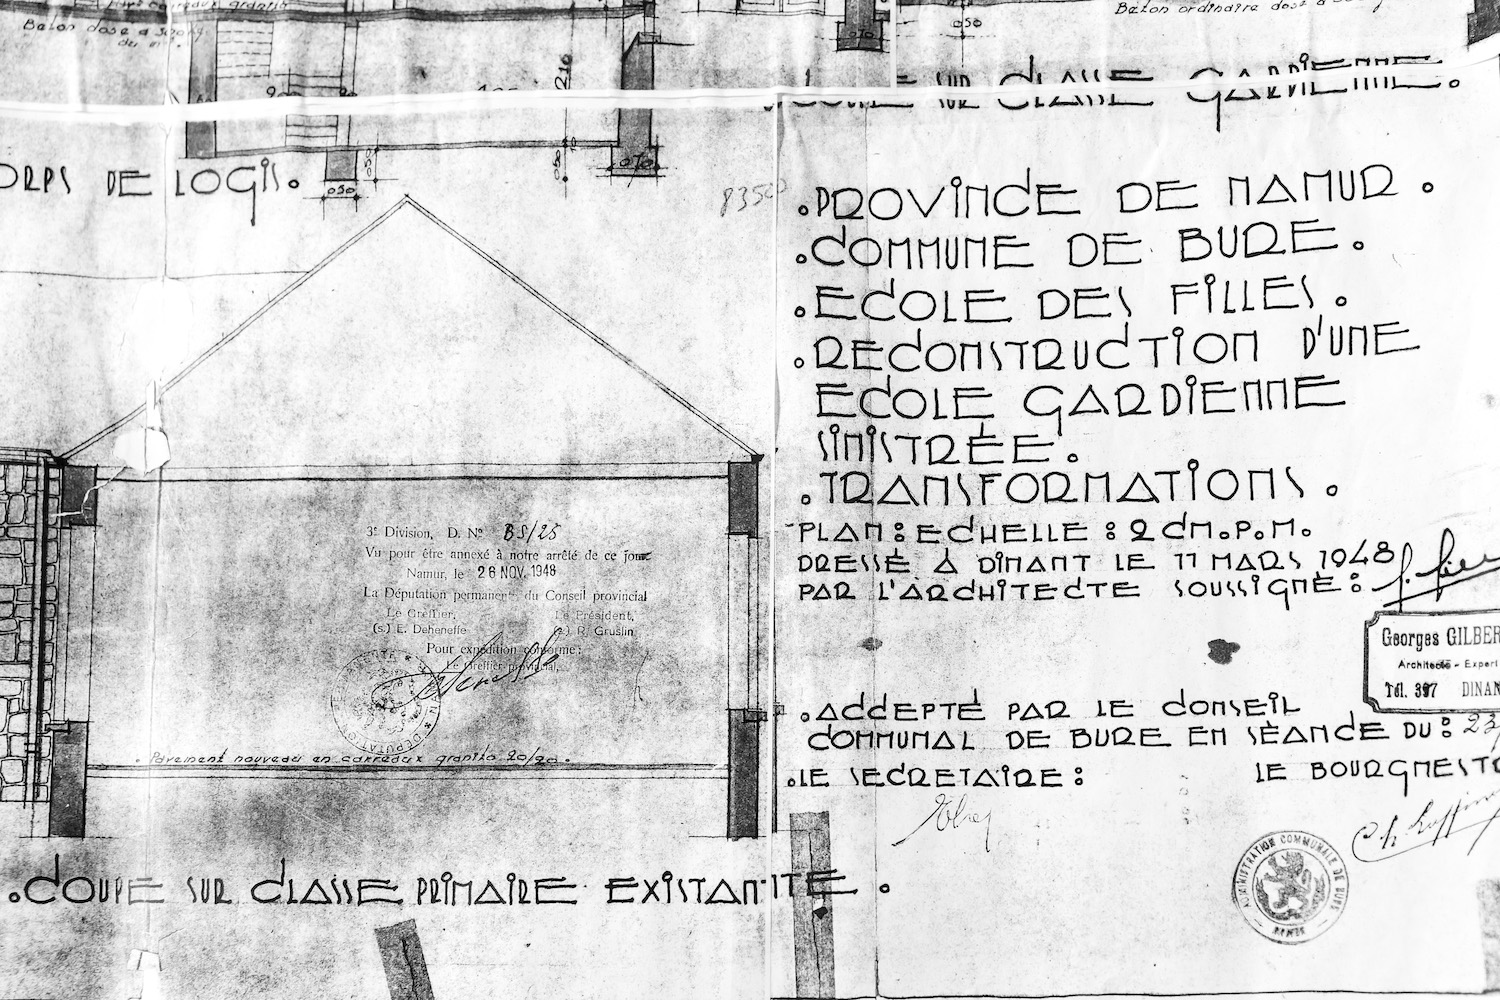 Beton dosé à 300kg
du m³.
Beton ordinaire dosé à
050
070
210
050
070
050
ORPS DE LOGIS.
COUPE SUR CLASSE GARDIENNE.
8350
.PROVINCE DE NAMUR.
.COMMUNE DE BURE.
.ECOLE DES FILLES.
.RECONSTRUCTION D'UNE
ECOLE GARDIENNE
SINISTRÉE.
.TRANSFORMATIONS.
PLAN: ECHELLE: 2 CM.P.M.
DRESSÉ À DINANT LE 11 MARS 1948
PAR L'ARCHITECTE SOUSSIGNÉ:
Georges GILBER
Architecte - Experi
Tél. 397 DINAN
.ACCEPTÉ PAR LE CONSEIL
COMMUNAL DE BURE EN SÈANCE DU: 23
.LE SECRETAIRE: LE BOURGMESTR
ADMINISTRATION COMMUNALE DE BURE
NAMUR
3e Division, D. No BS/25
Vu pour être annexé à notre arrêté de ce jour
Namur, le 26 NOV. 1948
La Députation permanente du Conseil provincial
Le Greffier, Le Président,
(s) E. Deheneffe (s) R. Gruslin
Pour expédition conforme:
Le Greffier provincial,
. Pavement nouveau en carreaux granito 20/20.
.COUPE SUR CLASSE PRIMAIRE EXISTANTE.